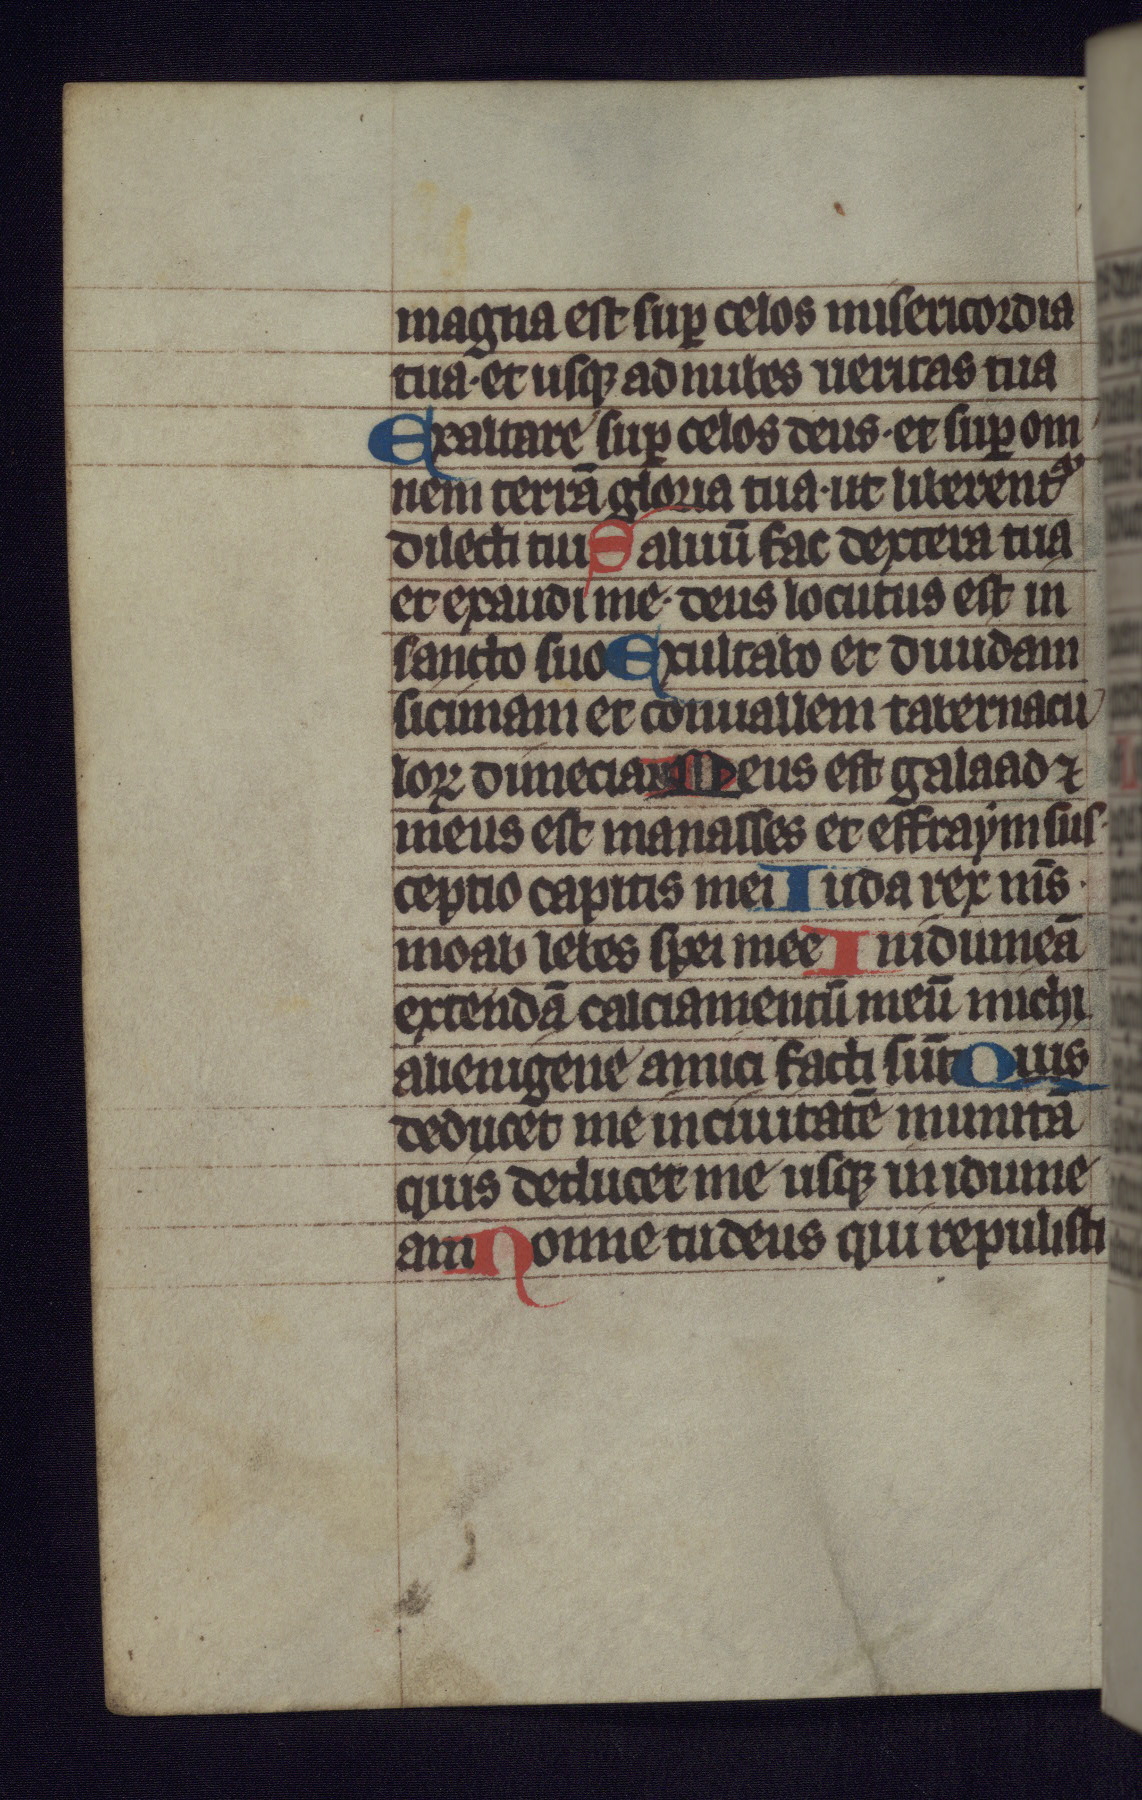 magna est sup celos misericordia
tua·et usq; ad nubes ueritas tua
Exaltare sup celos deus·et sup om
nem terrā gloria tua·ut liberent᷑
dilecti tui Saluū fac dextera tua
et exaudi me·deus locutus est in
sancto suo Exultabo et diuidam
sicimam et conuallem tabernacu
loꝝ dimeciar Meus est galaad ⁊
meus est manasses et effraym sus
ceptio capitis mei Iuda rex m̄s·
moab lebes spei mee In idumeā
extendā calciamentū meū michi
alienigene amici facti sūt Quis
deducet me in ciuitatē munitā
quis deducet me usq; in idume
am Nonne tu deus qui repulisti